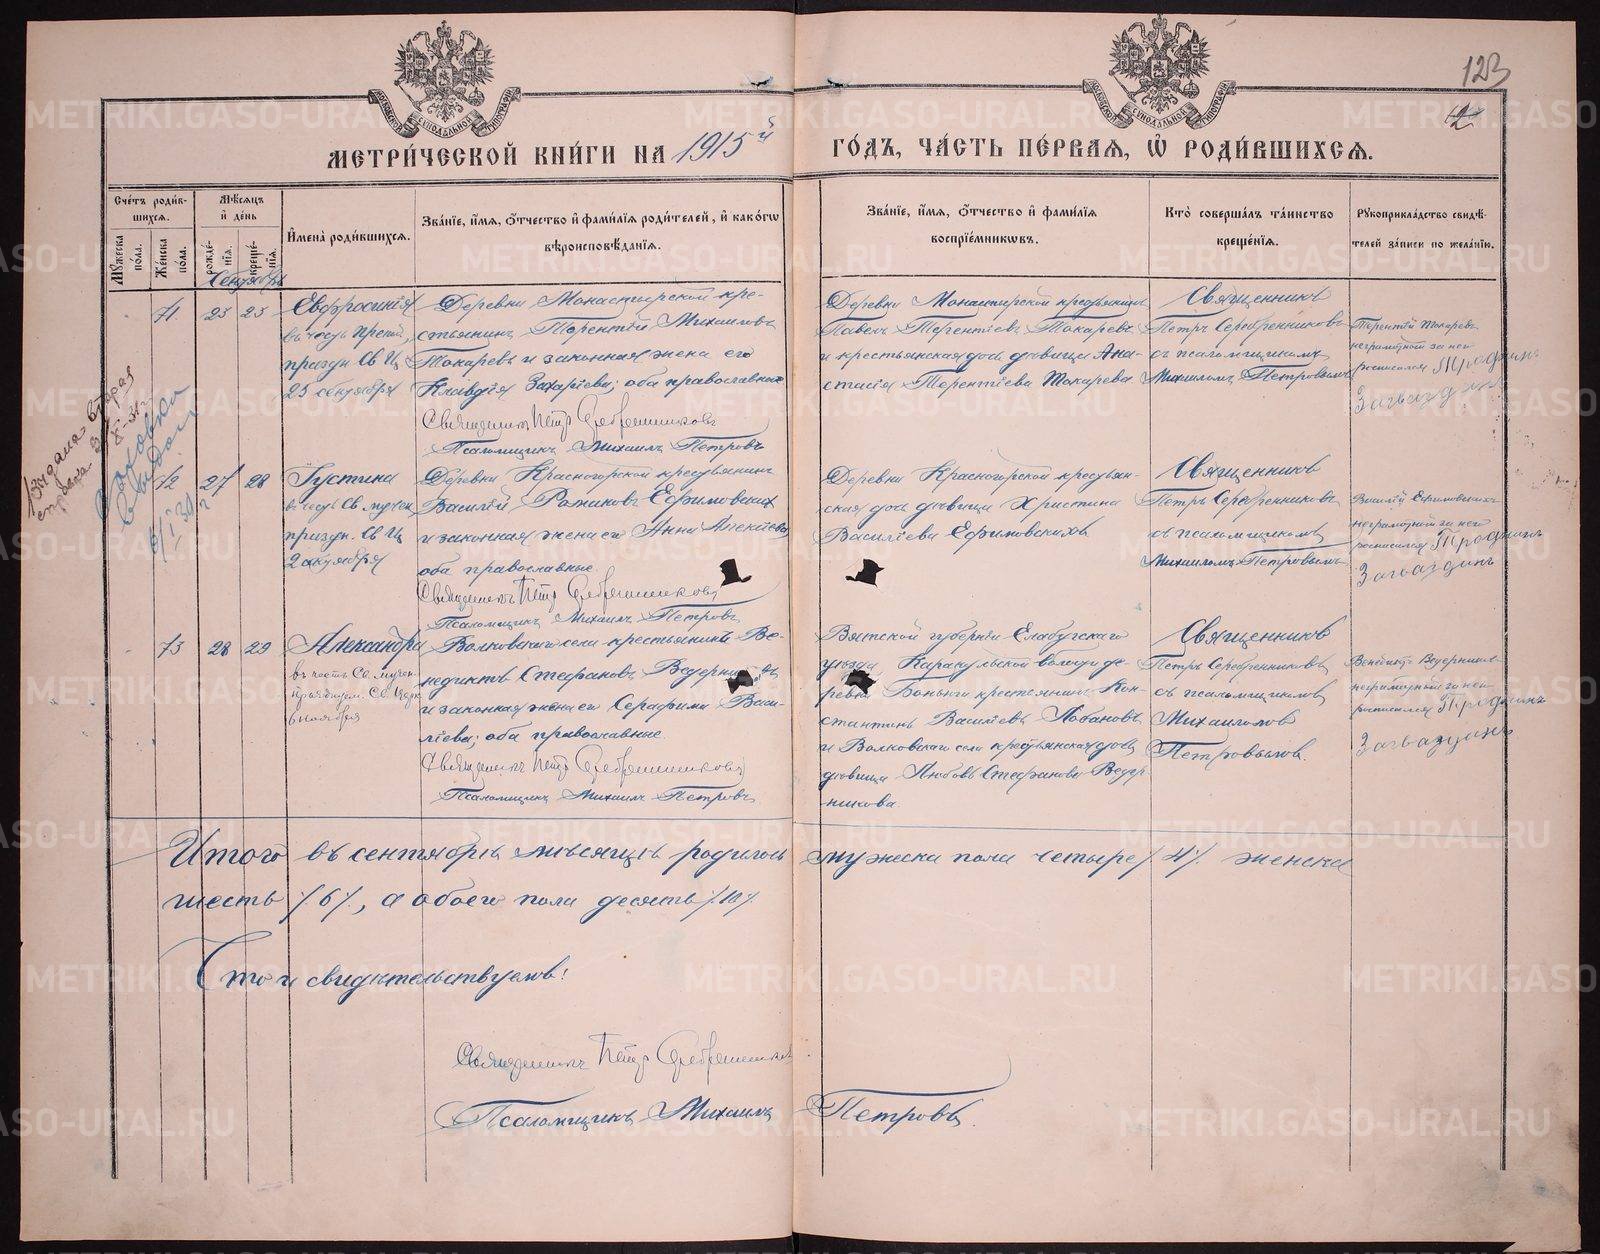 123
12
МЕТРИ́ЧЕСКОЙ КНИ́ГИ НА 1915 й
ГО́ДЪ, ЧА́СТЬ ПЕ́РВАЯ, Ѽ РОДИ́ВШИХСЯ.
Сче́тъ роди́в-
шихся.
Мꙋ́жеска по́ла.
Же́нска по́ла.
Мѣ́сяцъ
и҆ де́нь
рожде́-
нїя.
креще́-
нїя.
И҆мена̀ роди́вшихся.
Зва́нїе, и҆́мя, ѻ҆́тчество и҆ фами́лїя роди́телей, и҆ како́гѡ
вѣроисповѣ́данїя.
Зва́нїе, и҆́мя, ѻ҆́тчество и҆ фами́лїя
воспрїе́мникѡвъ.
Кто̀ соверша́лъ та́инство
креще́нїя.
Рꙋкоприкла́дство свидѣ́-
телей за́писи по жела́нїю.
Сентября
71
23
23
Евфросинія
въ честь Препод.,
праздн. Св Ц.
25 сентября
Деревни Монастырской кре-
стьянинъ Терентій Михаиловъ
Токаревъ и законная жена его
Клавдія Захаріева; оба православные
Священникъ Петр Серебренниковъ
Псаломщикъ Михаилъ Петровъ
Деревни Монастырской крестьянинъ
Павелъ Терентіевъ Токаревъ
и крестьянская дочь дѣвица Ана-
стасія Терентіева Токарева
Священникъ
Петръ Серебренниковъ
съ псаломщикомъ
Михаиломъ Петровымъ
Терентій Токаревъ
неграмотный за него
росписался Трофимъ
Загваздинъ
Выдана вторая
справка
72
27
28
Іустина
въ честь Св. мучен.
праздн. Св Ц
2 октября
Деревни Красногорской крестьянинъ
Василій Ефимовскихъ
и законная жена его Анна Алексіева,
оба православные.
Священникъ Петр Серебренниковъ
Псаломщикъ Михаилъ Петровъ
Деревни Красногорской крестьян-
ская дочь дѣвица Христина
Василіева Ефимовскихъ
Священникъ
Петръ Серебренниковъ
съ псаломщикомъ
Михаиломъ Петровымъ
Василій Ефимовскихъ
неграмотный за него
росписался Трофимъ
Загваздинъ
73
28
29
Александра
въ честь Св. мучен.
празднуем. Св. Церк.
6 ноября
Волковскаго села крестьянинъ Ве-
недиктъ Стефановъ Ведерниковъ
и законная жена его Серафима Васи-
ліева; оба православные
Священникъ Петр Серебренниковъ
Псаломщикъ Михаилъ Петровъ
Вятской губерніи Елабугскаго
уѣзда Каракульской волости де-
ревни крестьянинъ Кон-
стантинъ Василіевъ Лобановъ
и Волковскаго села крестьянская дочь
дѣвица Любовь Стефанова Ведер-
никова.
Священникъ
Петръ Серебренниковъ
съ псаломщикомъ
Михаиломъ
Петровымъ.
Венедиктъ Ведерников
неграмотный за него
росписался Трофимъ
Загваздинъ
Итого въ сентябрѣ мѣсяцѣ родилось мужеска пола четыре /4/. женска
шесть /6/, а обоего пола десять /10/.
Что и свидѣтельствуемъ:
Священникъ Петр Серебренников
Псаломщикъ Михаилъ Петровъ.